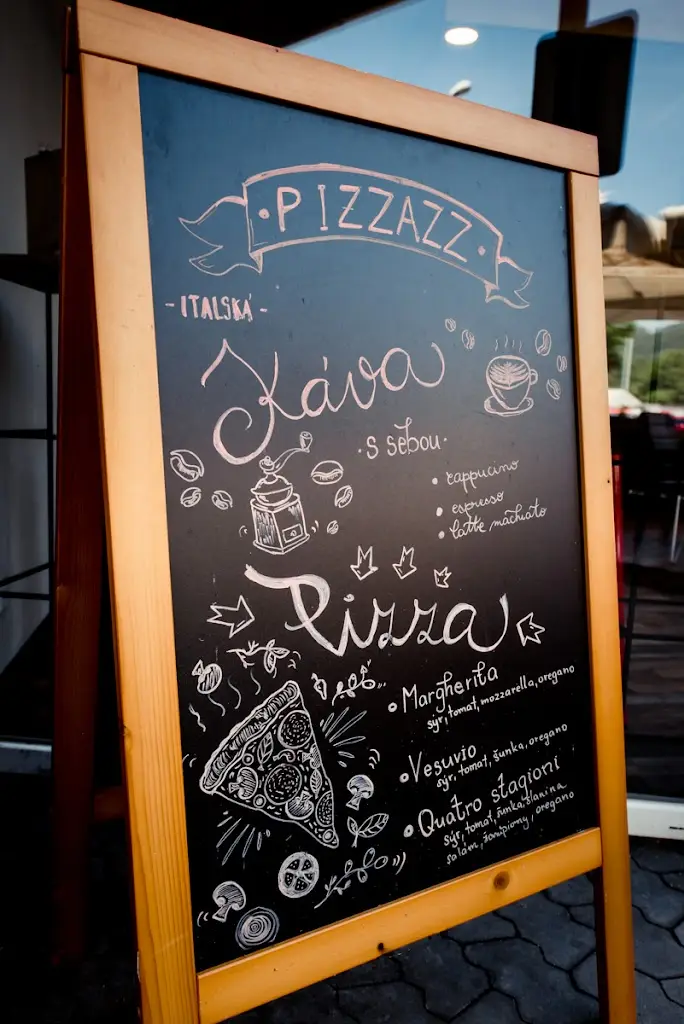 · PIZZAZZ ·
- ITALSKÁ -
Káva
· s sebou ·
• cappucino
• espresso
• latte machiato
Pizza
Margherita
sýr, tomat, mozzarella, oregano
Vesuvio
sýr, tomat, šunka, oregano
Quatro stagioni
sýr, tomat, šunka, slanina
salám, žampiony, oregano